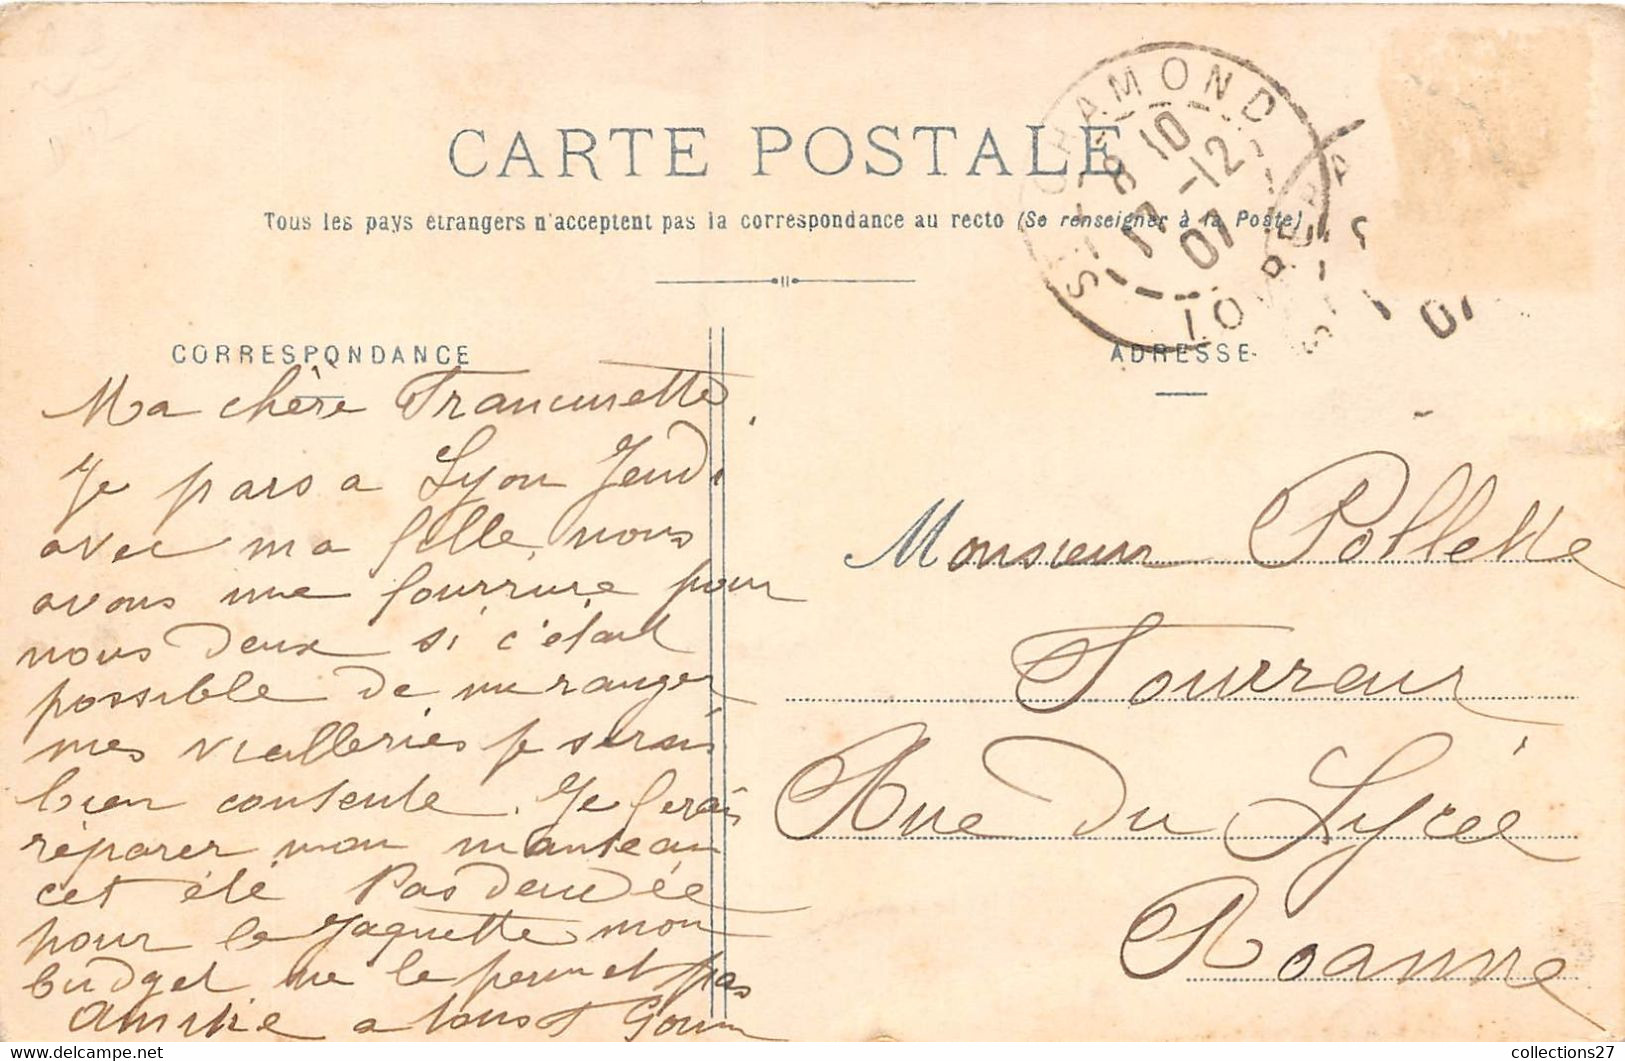 CARTE POSTALE
Tous les pays étrangers n'acceptent pas la correspondance au recto (Se renseigner à la Poste)
ST CHAMOND
8 10
17 -12
07
LOIRE
07
CORRESPONDANCE
ADRESSE
Ma chère Francinette
Je pars a Lyon Jeudi
avec ma fille, nous
avons une fourrure pour
nous deux si c'était
possible de me ranger
mes vielleries je serais
bien contente. Je ferais
réparer mon manteau
cet été Pas d'idée
pour la Jaquette mon
budget ne le permet pas
Amitié a tous
Monsieur Pollette
Fourreur
Rue du Lycée
Roanne
collections27